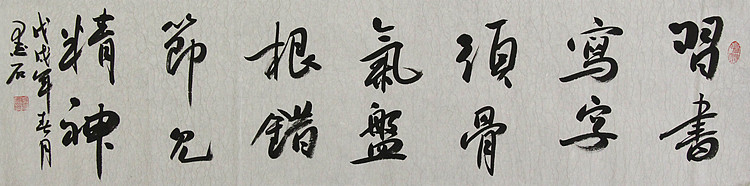 習書
寫字
須骨
氣盤
根錯
節見
精神
戊戌年春月
墨石